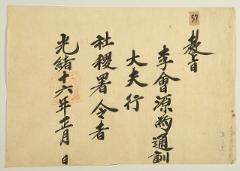 37
敎旨
李會源爲通訓
大夫行
社稷署令者
光緖十六年正月 日